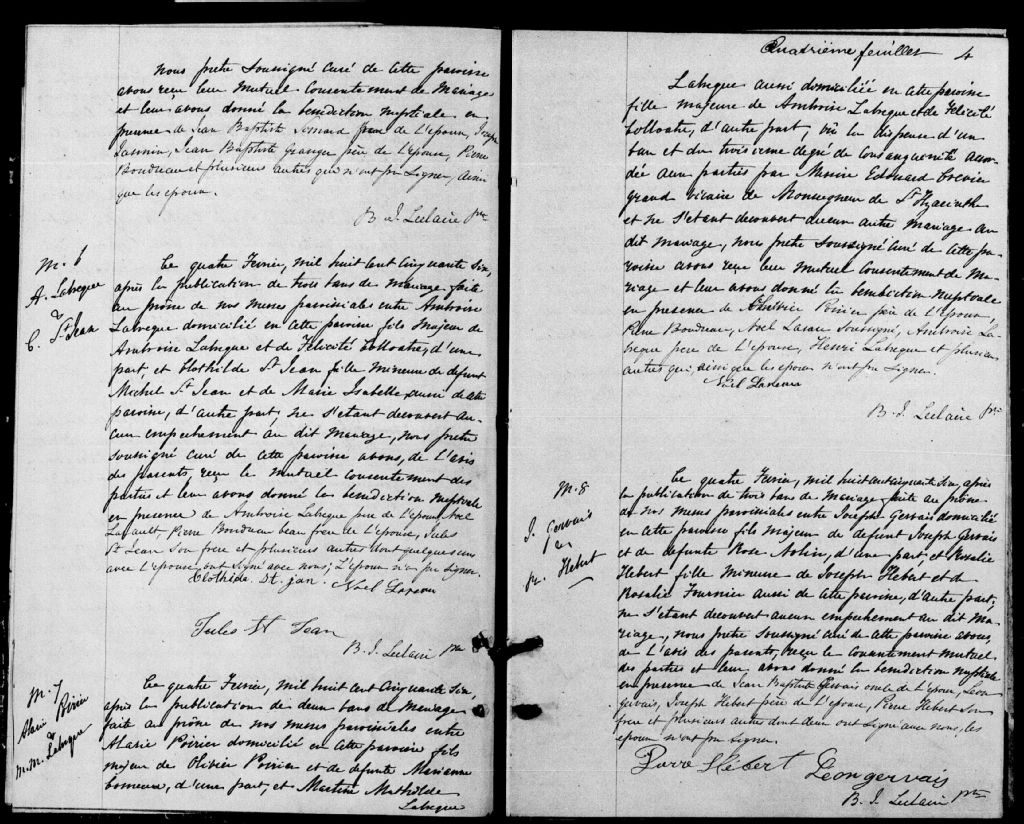 nous prêtre soussigné curé de cette paroisse
avons reçu leur mutuel consentement de mariage
et leur avons donné la bénédiction nuptiale en
présence de Jean Baptiste frère de l'époux, Joseph
Jasmin, Jean Baptiste Granger père de l'épouse, Pierre
Boudreau et plusieurs autres qui n'ont pu signer, ainsi
que les époux.
B. J. Leclaire Ptre
M. 6
A. Labrecque
&
C. St Jean
Le quatre Fevrier, mil huit cent cinquante six,
après la publication de trois bans de mariage faite
au prône de nos messes paroissiales entre Ambroise
Labrecque domicilié en cette paroisse fils majeur de
Ambroise Labrecque et de Félicité d'une
part, et Clothilde St Jean fille mineure de defunt
Michel St Jean et de Marie Isabelle aussi de cette
paroisse, d'autre part, ne s'étant decouvert au-
cun empechement au dit mariage, nous prêtre
soussigné curé de cette paroisse avons, de l'avis
des parents, reçu le mutuel consentement des
parties et leur avons donné la bénédiction nuptiale
en presence de Ambroise Labrecque père de l'époux, Noël
Pierre Boudreau beau frère de l'épouse, Jules
St Jean son frere et plusieurs autres dont quelques uns
avec l'épouse ont signé avec nous; l'époux n'a pu signer.
Clothide St. jan. Noël Lareau
Jules St Jean
B. J. Leclaire Ptre
M. 7
Alarie Poirier
&
M. M. Labrecque
Le quatre Fevrier, mil huit cent cinquante six,
après la publication de deux bans de mariage
faite au prône de nos messes paroissiales entre
Alarie Poirier domicilié en cette paroisse fils
majeur de Olivier Poirier et de defunte Marianne
d'une part, et Martine Mathilde
Labrecque
Quatrième feuillet 4
Labrecque aussi domiciliée en cette paroisse
fille majeure de Ambroise Labrecque et de Félicité
d'autre part, vû la dispense d'un
ban et du troisième degré de consanguinité accor-
dée aux parties par Messire Edouard Crevier
grand vicaire de Monseigneur de St Hyacinth
et ne s'étant decouvert aucun autre mariage au
dit mariage, nous prêtre soussigné curé de cette pa-
roisse avons reçu leur mutuel consentement de ma-
riage et leur avons donné la bénédiction nuptiale
en presence de Olivier Poirier père de l'époux,
Pierre Boudreau, Noël Lareau soussigné, Ambroise La-
brecque père de l'épouse, Henri Labrecque et plusieurs
autres qui, ainsi que les époux n'ont pu signer.
Noël Lareau
B. J. Leclaire Ptre
M. 8
J. Gervais
&
R. Hebert
Le quatre Fevrier, mil huit cent cinquante six, après
la publication de trois bans de mariage faite au prône
de nos messes paroissiales entre Joseph Gervais domicilié
en cette paroisse fils majeur de defunt Joseph Gervais
et de defunte Rose d'une part, et Rosalie
Hebert fille mineure de Joseph Hebert et de
Rosalie Fournier aussi de cette paroisse, d'autre part;
ne s'étant decouvert aucun empechement au dit ma-
riage, nous prêtre soussigné curé de cette paroisse avons,
de l'avis des parents, reçu le consentement mutuel
des parties et leur avons donné la bénédiction nuptiale
en presence de Jean Baptiste Gervais oncle de l'époux, Léon
Gervais, Joseph Hebert père de l'épouse, Pierre Hebert son
frere et plusieurs autres dont deux ont signé avec nous, les
époux n'ont pu signer.
Pierre Hébert Leon gervais
B. J. Leclaire Ptre